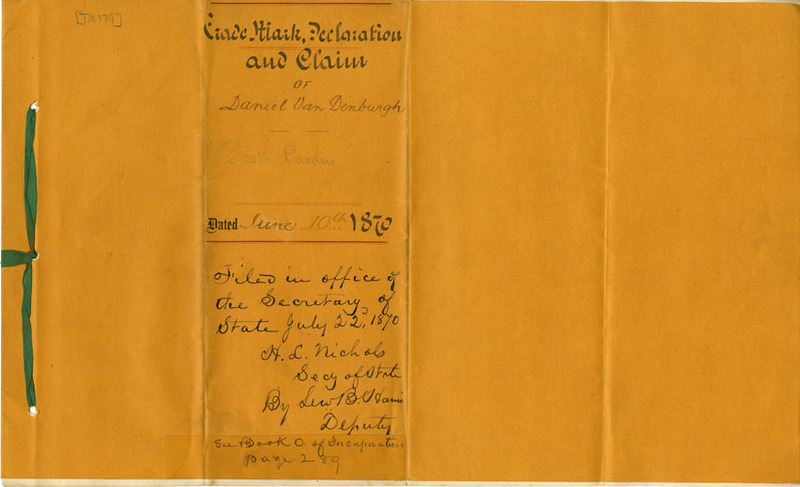 [TM179]
Trade Mark, Declaration
and Claim
OF
Daniel Van Denburgh
Tooth Powders
Dated June 10th 1870
Filed in office of
the Secretary of
State July 22d, 1870
H. L. Nichols
Secy of State
By Lew B. Harris
Deputy
See Book O. of Incorporations
page 239